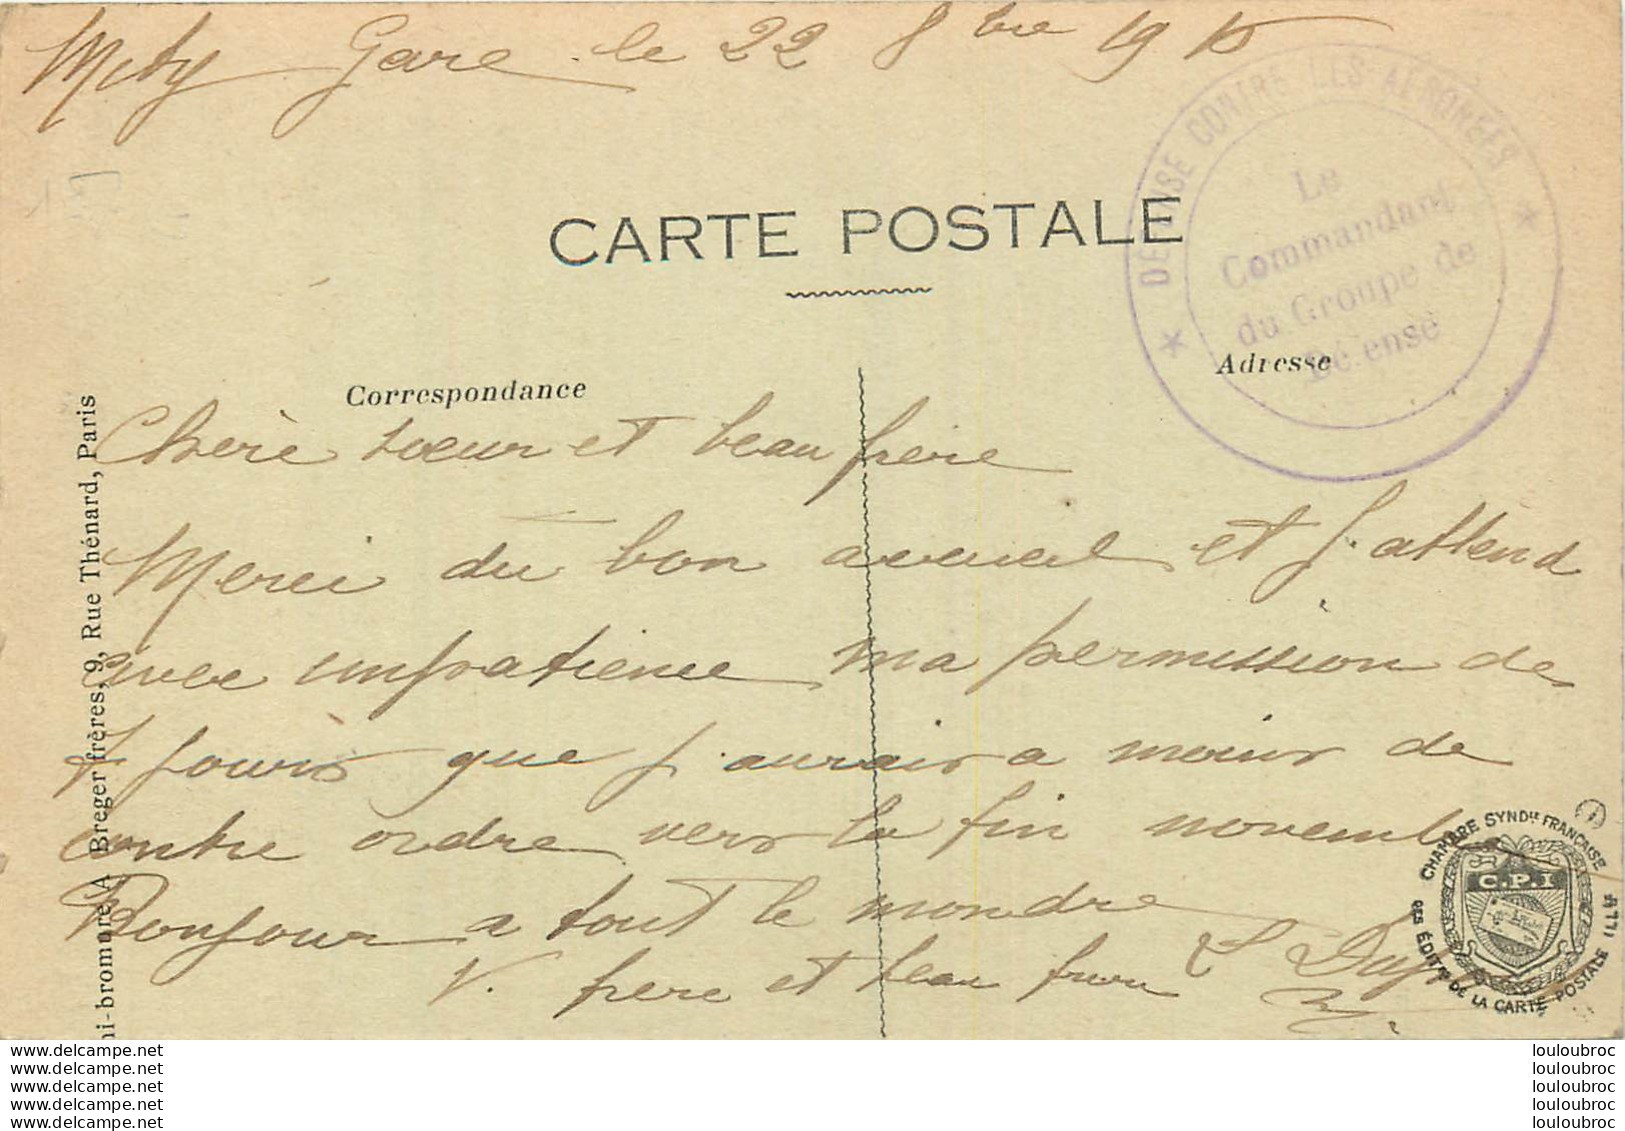 Mitry Gare le 22 8bre 1915
DEFENSE CONTRE LES AERONEFS
Le
Commandant
du Groupe de
Défense
CARTE POSTALE
Correspondance
Adresse
Chère sœur et beau frère
Merci du bon accueil et j'attend
avec impatience ma permission de
7 jours que j'aurais a moins de
contre ordre vers la fin novembre
Bonjour a tout le monde
V. frere et beau frere L
CHAMBRE SYNDle FRANÇAISE
C.P.I
DES ÉDITrs DE LA CARTE POSTALE ILLte
ni-bromure A. Breger frères, 9, Rue Thénard, Paris
www.delcampe.net louloubroc
www.delcampe.net louloubroc
www.delcampe.net louloubroc
www.delcampe.net louloubroc
www.delcampe.net louloubroc